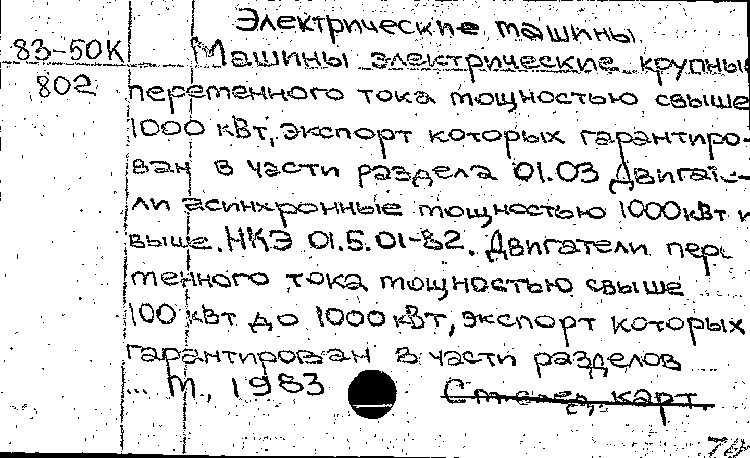 Электрические машины
83-50К Машины электрические крупные
802 переменного тока мощностью свыше
1000 кВт, экспорт которых гарантиро-
ван в части раздела 01.03 Двигате-
ли асинхронные мощностью 1000кВт и
выше. НКЭ 01.5.01-82. Двигатели пере
менного тока мощностью свыше
100 кВт до 1000 кВт, экспорт которых
гарантирован в части разделов
... М., 1983 карт.